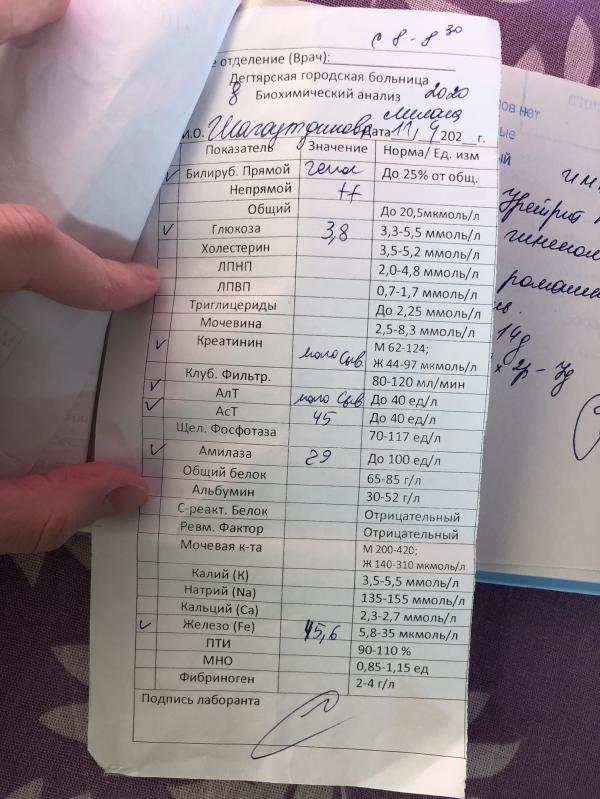 с 8 - 8 30
е отделение (Врач):
Дегтярская городская больница
8 Биохимический анализ 2020
И.О. Дата 11/ 9 202__г.
Показатель Значение Норма/ Ед. изм
Билируб. Прямой гемол До 25% от общ.
Непрямой
Общий До 20,5мкмоль/л
Глюкоза 3,8 3,3-5,5 ммоль/л
Холестерин 3,5-5,2 ммоль/л
ЛПНП 2,0-4,8 ммоль/л
ЛПВП 0,7-1,7 ммоль/л
Триглицериды До 2,25 ммоль/л
Мочевина 2,5-8,3 ммоль/л
Креатинин мало сыв. М 62-124;
Ж 44-97 мкмоль/л
Клуб. Фильтр. 80-120 мл/мин
АлТ мало сыв До 40 ед/л
АсТ 45 До 40 ед/л
Щел. Фосфотаза 70-117 ед/л
Амилаза 29 До 100 ед/л
Общий белок 65-85 г/л
Альбумин 30-52 г/л
С-реакт. Белок Отрицательный
Ревм. Фактор Отрицательный
Мочевая к-та М 200-420;
Ж 140-310 мкмоль/л
Калий (К) 3,5-5,5 ммоль/л
Натрий (Na) 135-155 ммоль/л
Кальций (Са) 2,3-2,7 ммоль/л
Железо (Fe) 15,6 5,8-35 мкмоль/л
ПТИ 90-110 %
МНО 0,85-1,15 ед
Фибриноген 2-4 г/л
Подпись лаборанта
ов нет
ые
ый
гинекол
ромашк
14д